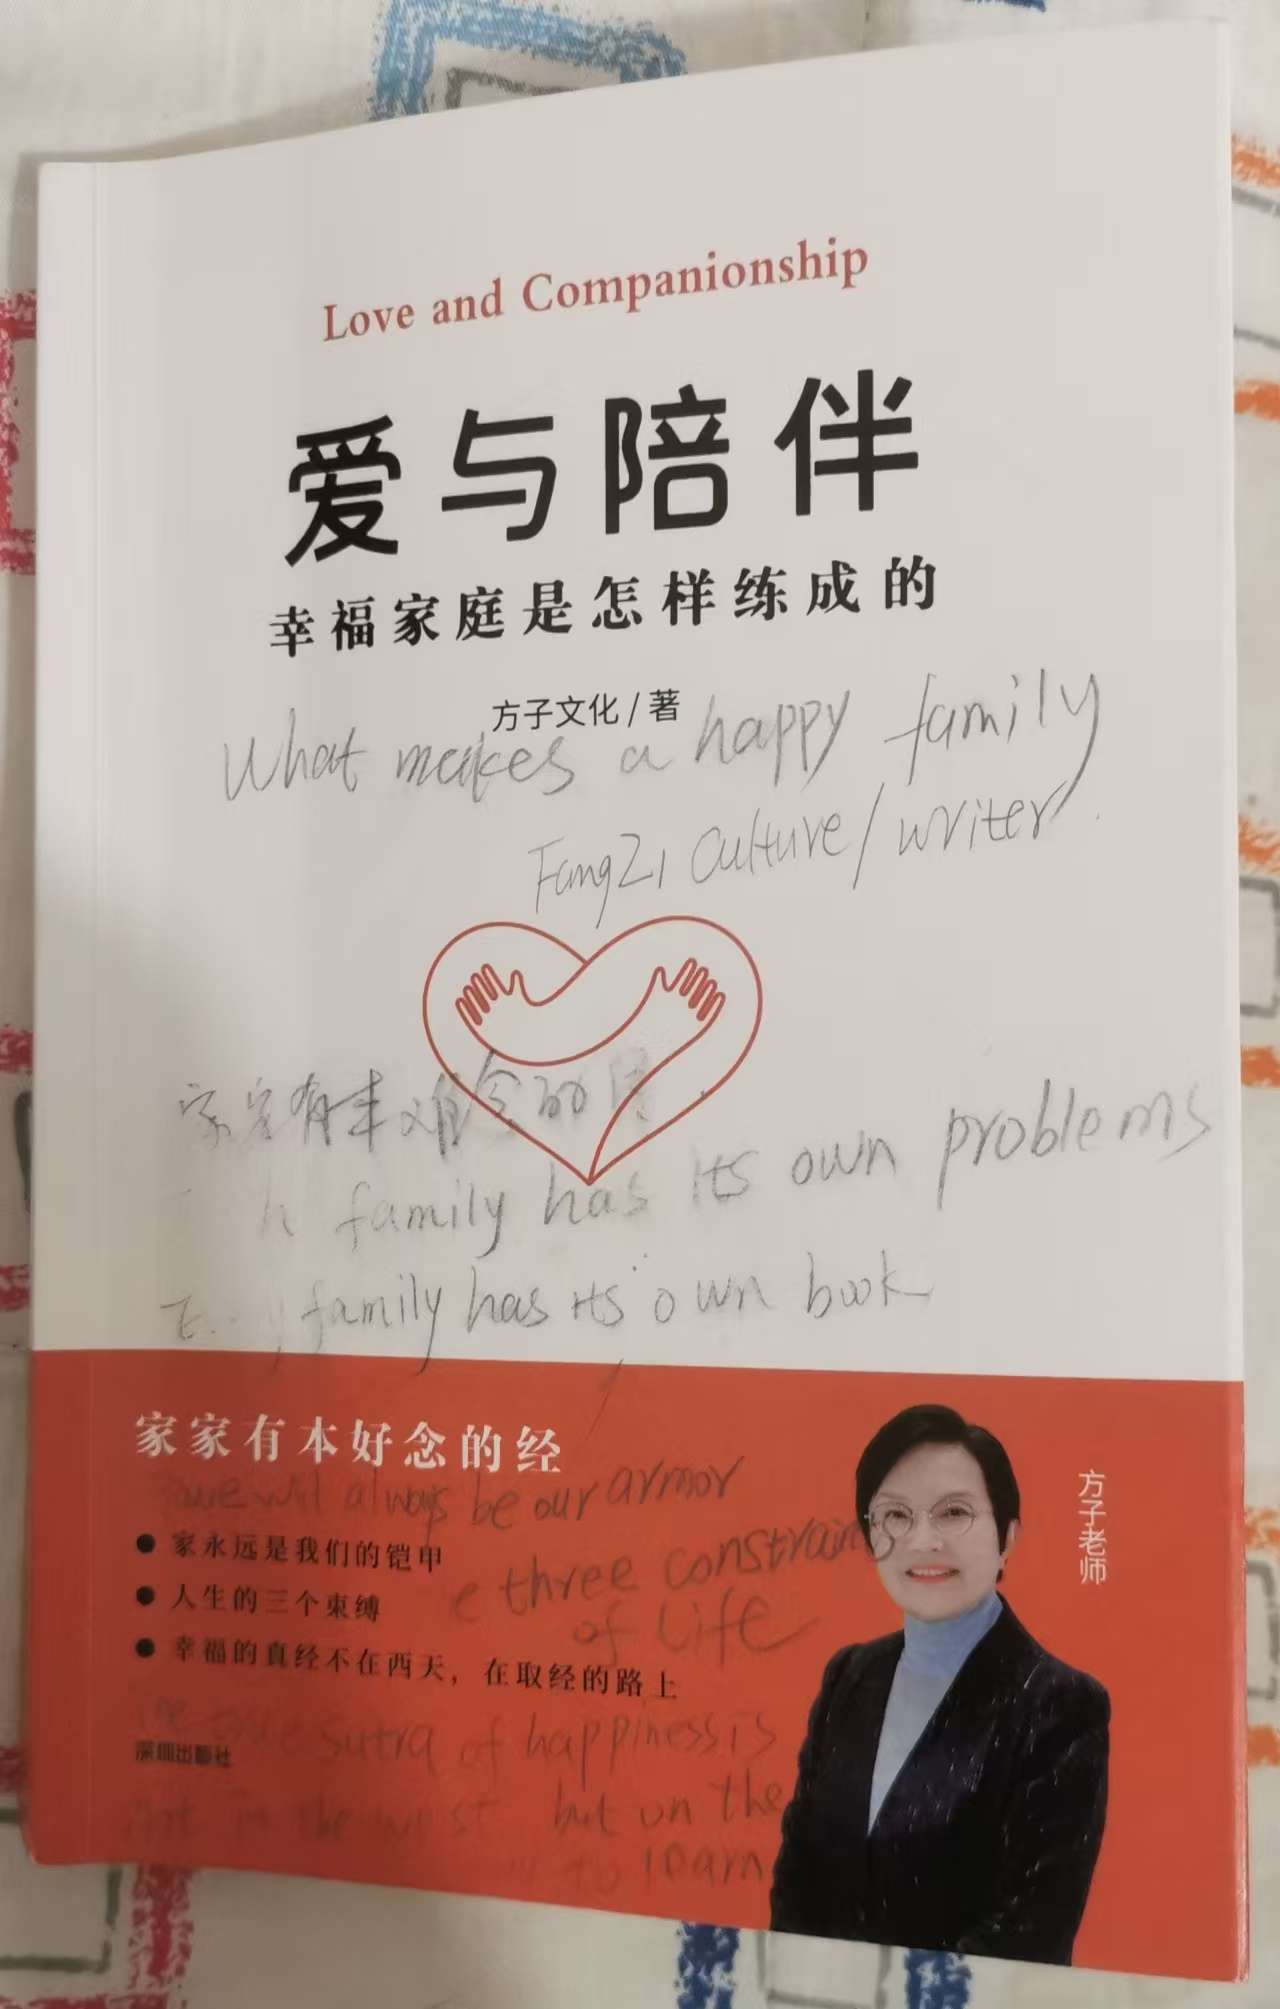 Love and Companionship
爱与陪伴
幸福家庭是怎样练成的
方子文化/著
What makes a happy family
FangZi culture/writer.
家家有本难念的
family has its own problems
family has its own book
家家有本好念的经
will always be our armor
● 家永远是我们的铠甲
three constraints
● 人生的三个束缚
of life
● 幸福的真经不在西天，在取经的路上
sutra of happiness is
深圳出版社
but on the
to learn
方子老师